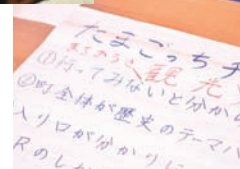 たまごっちチ
まちあるき 観光
①行ってみないと分から
②町全体が歴史のテーマパ
入り口が分かりに
Rのし